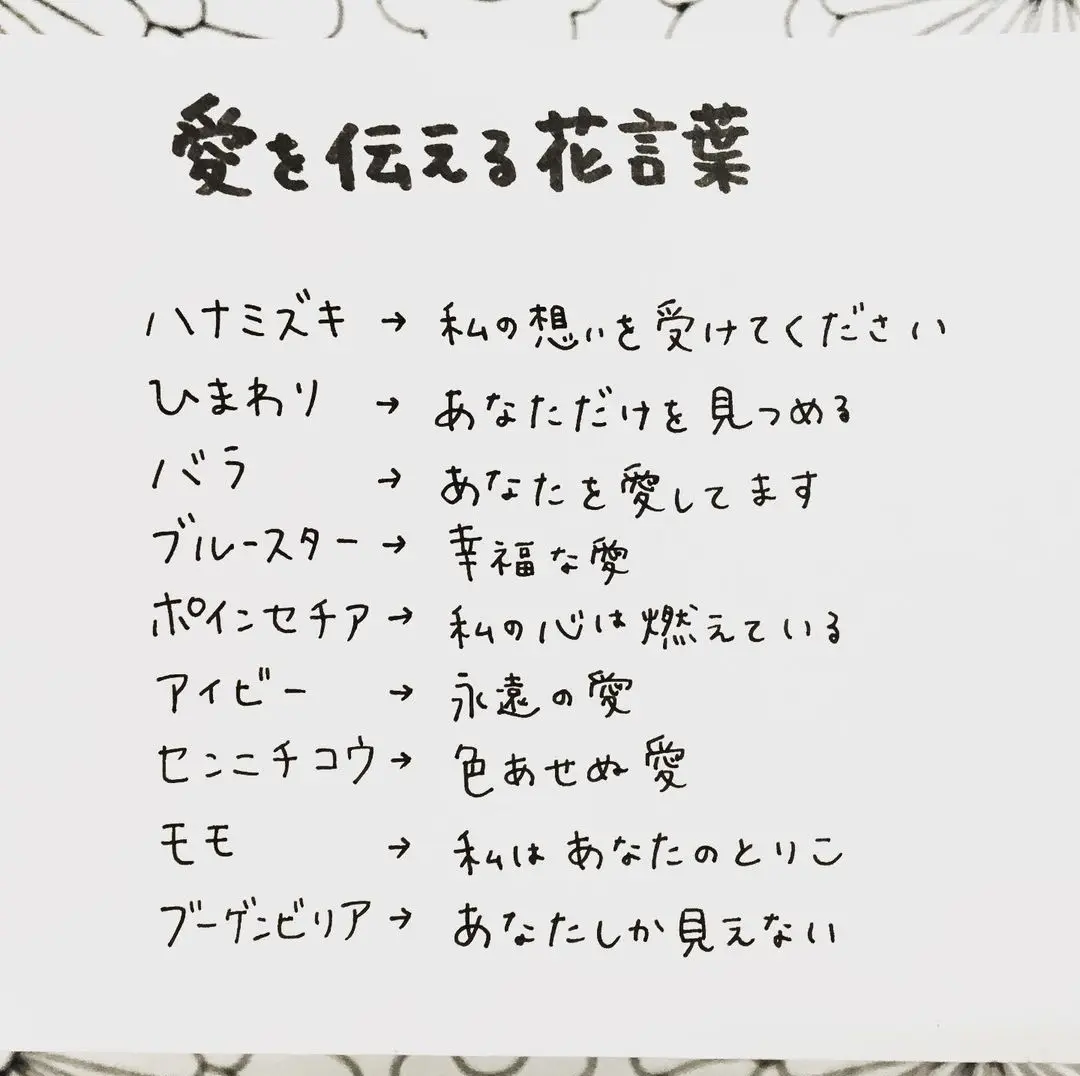 愛を伝える花言葉
ハナミズキ → 私の想いを受けてください
ひまわり → あなただけを見つめる
バラ → あなたを愛してます
ブルースター → 幸福な愛
ポインセチア → 私の心は燃えている
アイビー → 永遠の愛
センニチコウ → 色あせぬ愛
モモ → 私はあなたのとりこ
ブーゲンビリア → あなたしか見えない